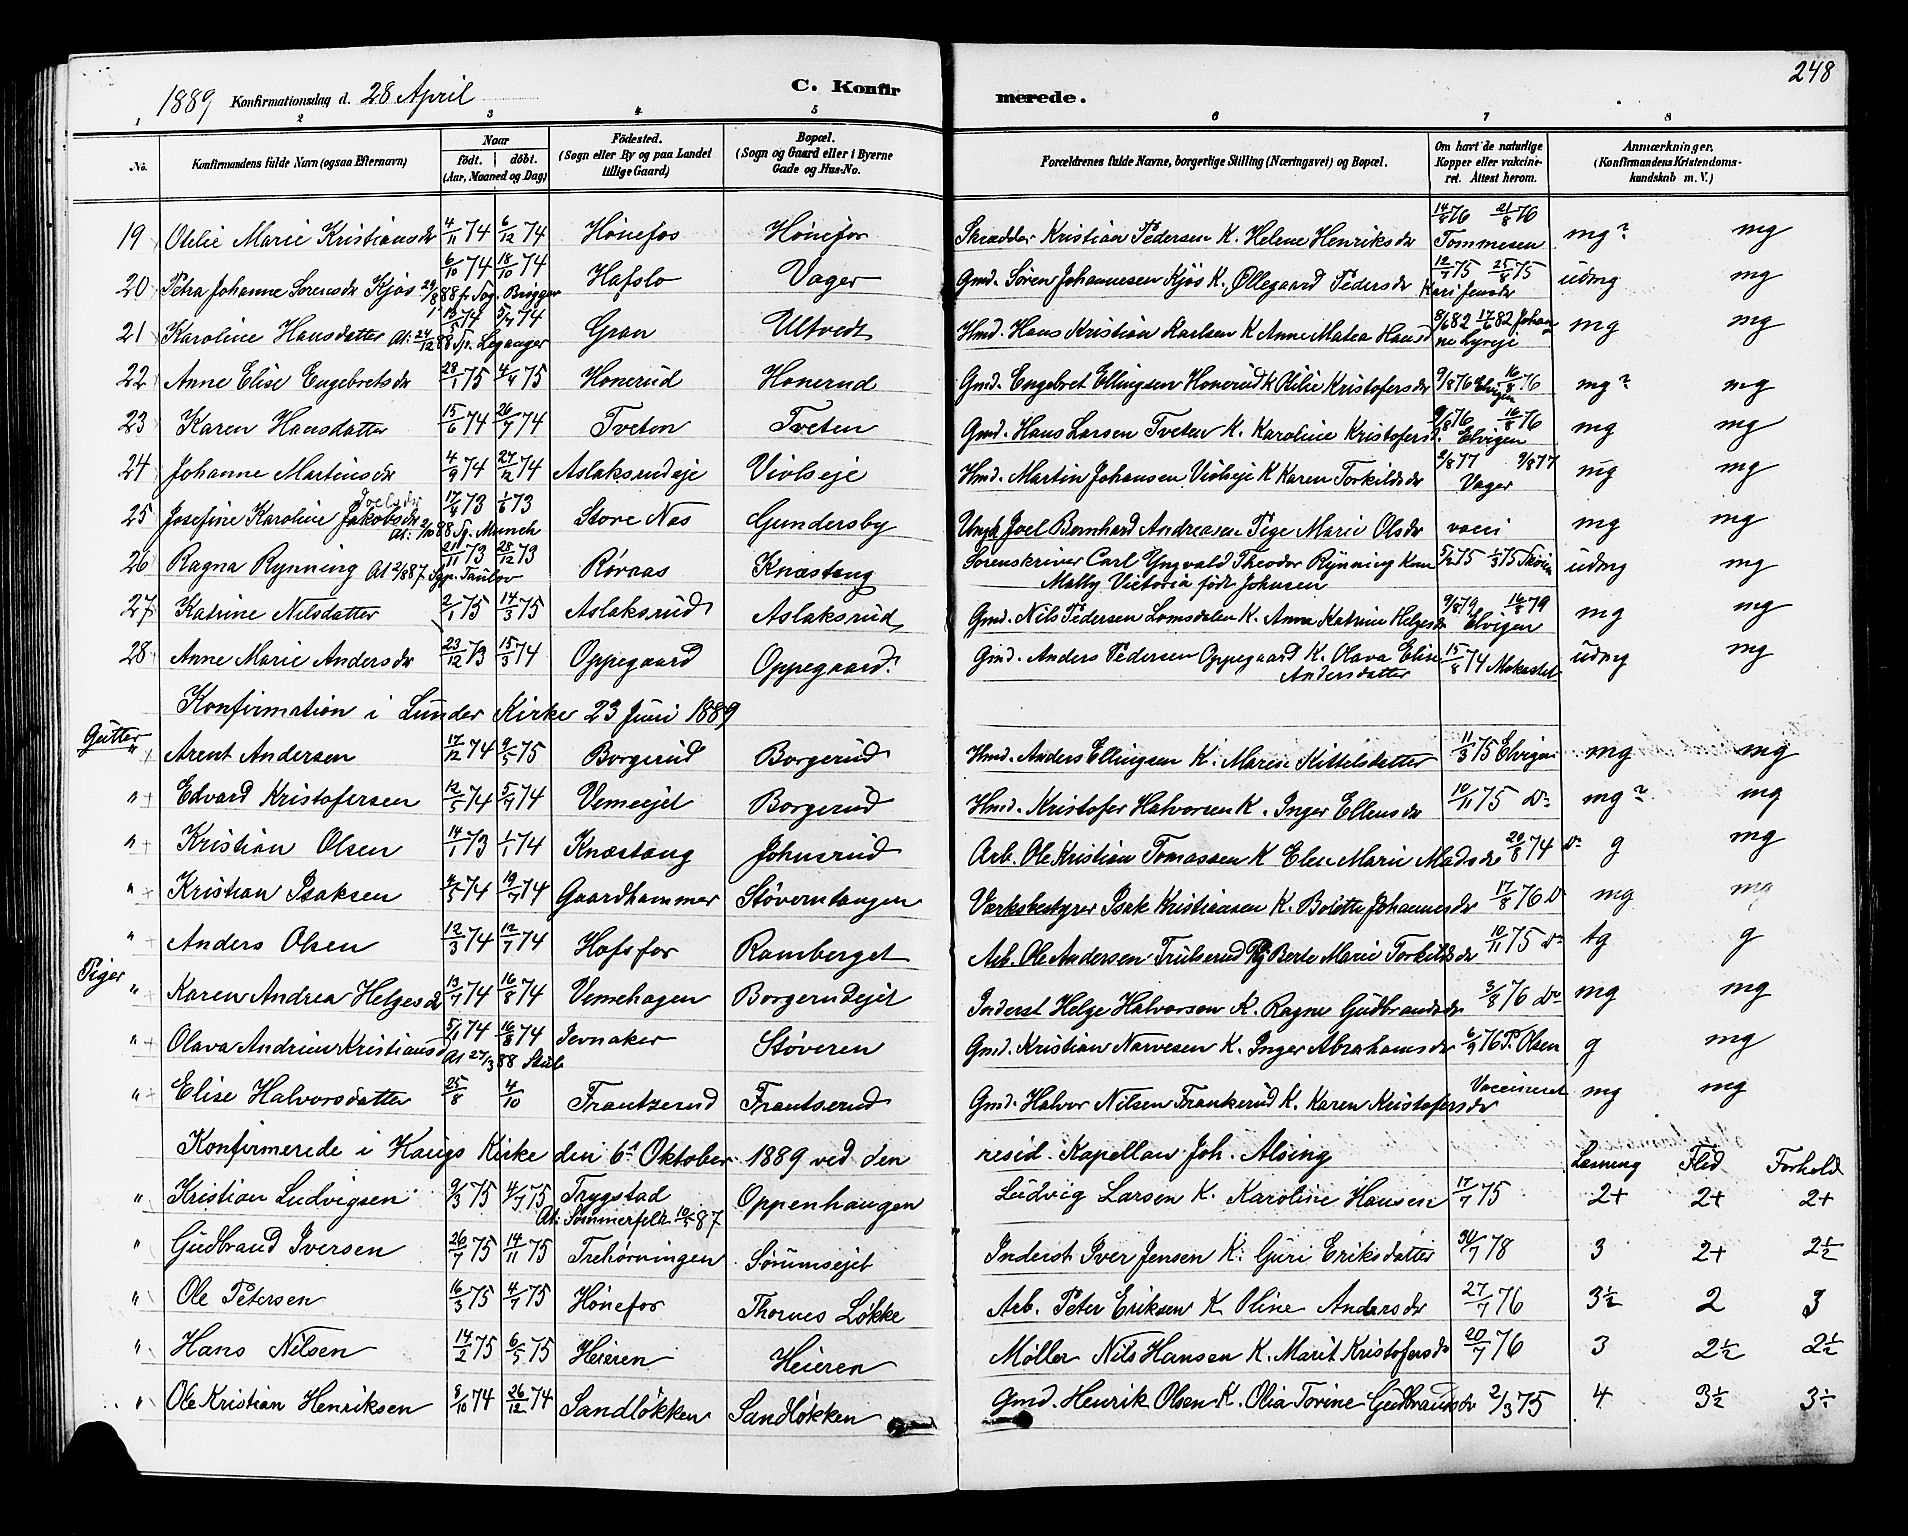 248
1889 Konfirmationsdag d. 28 April C. Konfirmerede.
1 2 3 4 5 6 7 8
No. Konfirmandens fulde Navn (ogsaa Efternavn) Naar födt. döbt. (Aar, Maaned og Dag) Födested. (Sogn eller By og paa Landet tillige Gaard) Bopæl. (Sogn og Gaard eller i Byerne Gade og Hus-No. Forældrenes fulde Navne, borgerlige Stilling (Næringsvei) og Bopæl. Om havt de naturlige Kopper eller vakcineret. Attest herom. Anmærkninger, (Konfirmandens Kristendomskundskab m. V.)
19 Otilie Marie Kristiansdr 4/11 74 6/12 74 Hønefos Hønefos Skrædder Kristian Pedersen K. Helene Henriksdr 14/8 76 21/8 76 Tommesen mg? mg
20 Petra Johanne Sorensdr Kjøs 6/10 74 18/10 74 Hafslo Vager Gmd. Søren Johannesen Kjøs K. Øllegaard Pedersdr 75 75 Kari Jensdr udmg mg
21 Karoline Hansdatter At: 24/12 88 Sp. Leganger 74 5/7 74 Gran Ultvedt Hmd. Hans Kristian Karlsen K Anne Matea Hansd 8/6 82 17/6 82 Johanne Lyseje mg mg
22 Anne Elise Engebretsdr 28/1 75 4/4 75 Honerud Honerud Gmd. Engebret Ellingsen Honerud K Otilie Kristofersdr 9/8 76 Elvigen 16/8 76 mg? mg
23 Karen Hansdatter 15/6 74 26/7 74 Tveten Tveten Gmd. Hans Larsen Tveten K. Karoline Kristofersd. 9/8 76 16/8 76 Elvigen mg mg
24 Johanne Martinsdr 4/9 74 27/12 74 Aslaksrudeje Violseje Hmd. Martin Johansen Violseje K Karen Torkildsdr 2/8 77 9/8 77 Vager mg mg
25 Josefine Karoline Jakobsdr Joelsdr At: 2/10 88 Sp. Munch 17/4 73 1/6 73 Store Nes Gundersby Ungk Joel Bernhard Andreasen Pige Marie Olsdr vacci mg mg
26 Ragna Rynning At 2/8 87 Sgp. Taulov 21/11 73 28/12 73 Røraas Knæstang Sorenskriver Carl Yngvald Theodor Rynning Kone Malby Victoria født Johnsen 75 75 udmg mg
27 Katrine Nilsdatter 2/1 75 14/3 75 Aslaksrud Aslaksrud Gmd. Nils Pedersen Lomsdalen K. Anne Katrine Helgesdr 9/8 79 16/8 79 Elvigen mg mg
28 Anne Marie Andersdr 23/12 73 15/3 74 Oppegaard Oppegaard Gmd. Anders Pedersen Oppegaard K. Olava Elise Andersdatter 15/8 74 Mokastet udmg mg
Konfirmation i Lunder Kirke 23 Juni 1889
Gutter " Arent Andersen 17/12 74 9/5 75 Borgerud Borgerud Hmd. Anders Ellingsen K. Maren Kittelsdatter 11/3 75 Elvigen mg mg
" Edvard Kristofersen 12/5 74 5/7 74 Vemeejet Borgerud Hmd. Kristofer Halvorsen K. Inger Ellensdr 10/11 75 do mg? mg
" Kristian Olsen 14/1 73 1/1 74 Knæstang Johnsrud Arb. Ole Kristian Tomassen K Elen Marie Madsdr 20/8 74 do g mg
" Kristian Isaksen 4/5 74 19/7 74 Gaardhammer Støverntangen Værksbestyrer Isak Kristiansen K. Bolette Johannesdr 17/8 76 do mg mg
" Anders Olsen 12/3 74 12/7 74 Hofsfos Ramberget Arb. Ole Andersen Trulserud Pg Berte Marie Torkildsdr 10/11 75 do tg g
Piger " Karen Andrea Helgesdr 13/7 74 16/8 74 Vemehagen Borgerudejet Inderst Helge Halvorsen K. Ragne Gudbrandsdr 3/8 76 do mg mg
" Olava Andrine Kristiansd 5/1 74 16/8 74 Jevnaker Støveren Gmd. Kristian Narvesen K. Inger Abrahamsdr 6/9 76 P. Olsen g mg
At 27/3 88 Stub
" Elise Halvorsdatter 25/8 4/10 Frantzerud Frantserud Gmd. Halvor Nilsen Frankerud K. Karen Kristofersdr Vaccineret mg mg
Konfirmerede i Haugs Kirke den 6te Oktober 1889 ved den resid. Kapellan Joh. Alsing Læsning Flid Forhold
" Kristian Ludvigsen 9/3 75 4/7 75 Trygstad Oppenhaugen Ludvig Larsen K. Karoline Hansen 17/7 75 2+ 2+ 2+
At: Sommerfelt 10/5 87
" Gudbrand Iversen 26/7 75 14/11 75 Trehørningen Sørumsejet Inderst Iver Jensen K. Guri Eriksdatter 30/7 78 3 2+ 2½
" Ole Petersen 16/3 75 4/7 75 Hønefos Thornes Løkke Arb. Peter Eriksen K Oline Andersdr 27/7 76 3½ 2 3
" Hans Nilsen 14/2 75 6/5 75 Heieren Heieren Møller Nils Hansen K. Marit Kristofersdr 20/7 76 3 2½ 2½
" Ole Kristian Henriksen 8/10 74 26/12 74 Sandløkken Sandløkken Gmd. Henrik Olsen K. Olia Torine Gudbrandsdr 2/3 75 4 3½ 3÷